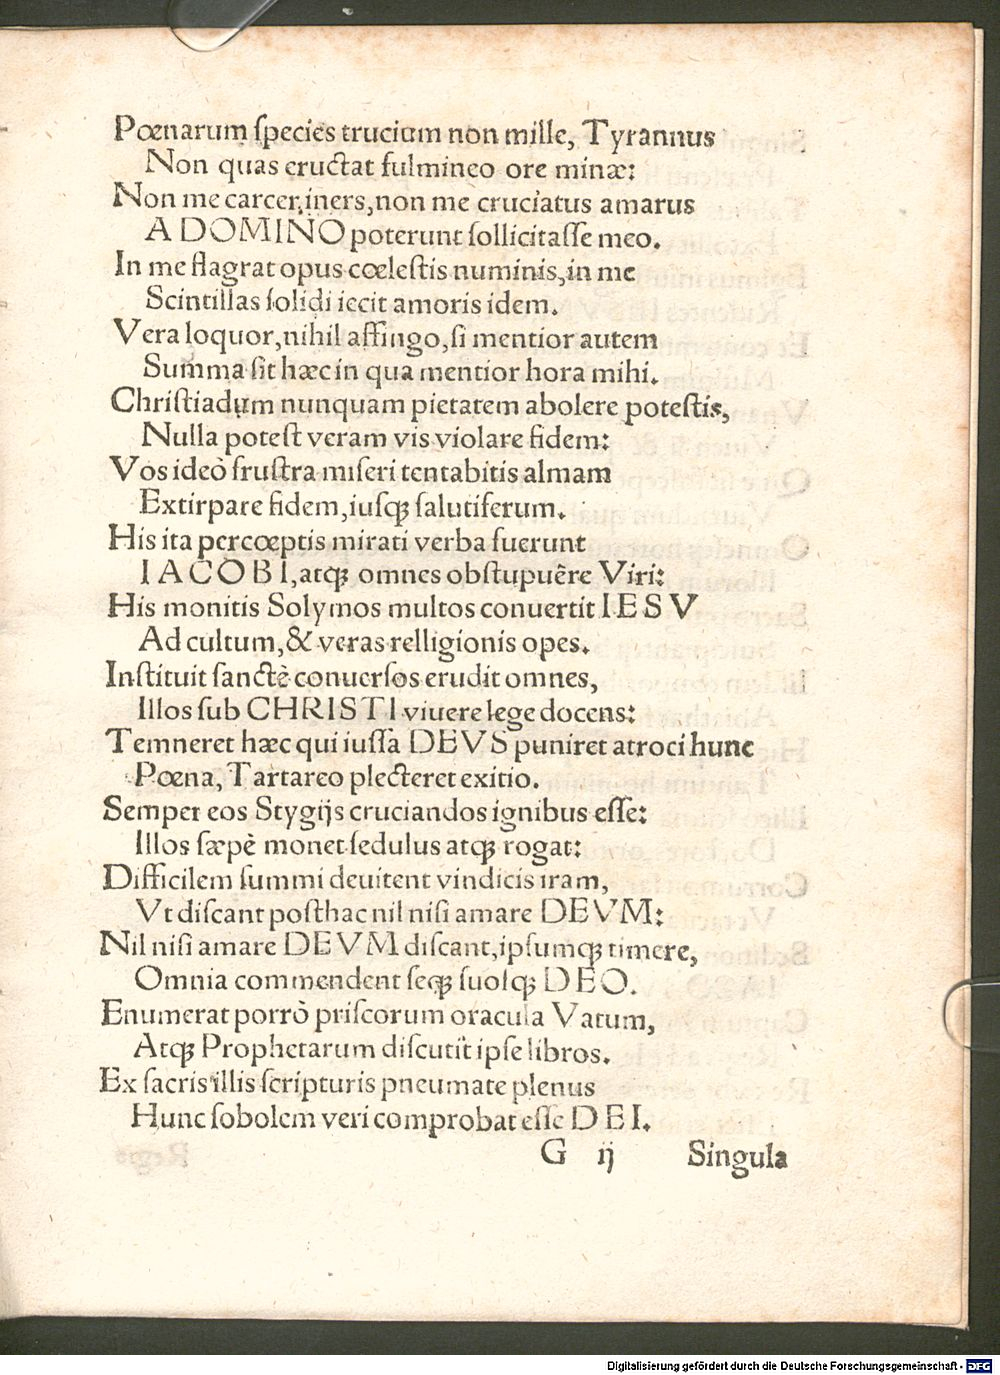 Pœnarum ſpecies trucium non mille, Tyrannus
Non quas eructat fulmineo ore minæ:
Non me carcer, iners, non me cruciatus amarus
A DOMINO poterunt ſollicitaſſe meo.
In me flagrat opus cœleſtis numinis, in me
Scintillas ſolidi iecit amoris idem.
Vera loquor, nihil affingo, ſi mentior autem
Summa ſit hæc in qua mentior hora mihi.
Chriſtiadum nunquam pietatem abolere poteſtis,
Nulla poteſt veram vis violare fidem:
Vos ideò fruſtra miſeri tentabitis almam
Extirpare fidem, iuſqꝫ ſalutiferum.
His ita percœptis mirati verba fuerunt
IACOBI, atqꝫ omnes obſtupuêre Viri:
His monitis Solymos multos conuertit IESV
Ad cultum, & veras relligionis opes.
Inſtituit ſanctè conuerſos erudit omnes,
Illos ſub CHRISTI viuere lege docens:
Temneret hæc qui iuſſa DEVS puniret atroci hunc
Pœna, Tartareo plecteret exitio.
Semper eos Stygijs cruciandos ignibus eſſe:
Illos ſæpè monet ſedulus atqꝫ rogat:
Difficilem ſummi deuitent vindicis iram,
Vt diſcant poſthac nil niſi amare DEVM:
Nil niſi amare DEVM diſcant, ipſumqꝫ timere,
Omnia commendent ſeqꝫ ſuoſqꝫ DEO.
Enumerat porrò priſcorum oracula Vatum,
Atqꝫ Prophetarum diſcutit ipſe libros.
Ex ſacris illis ſcripturis pneumate plenus
Hunc ſobolem veri comprobat eſſe DEI.
G ij Singula
Digitalisierung gefördert durch die Deutsche Forschungsgemeinschaft - DFG